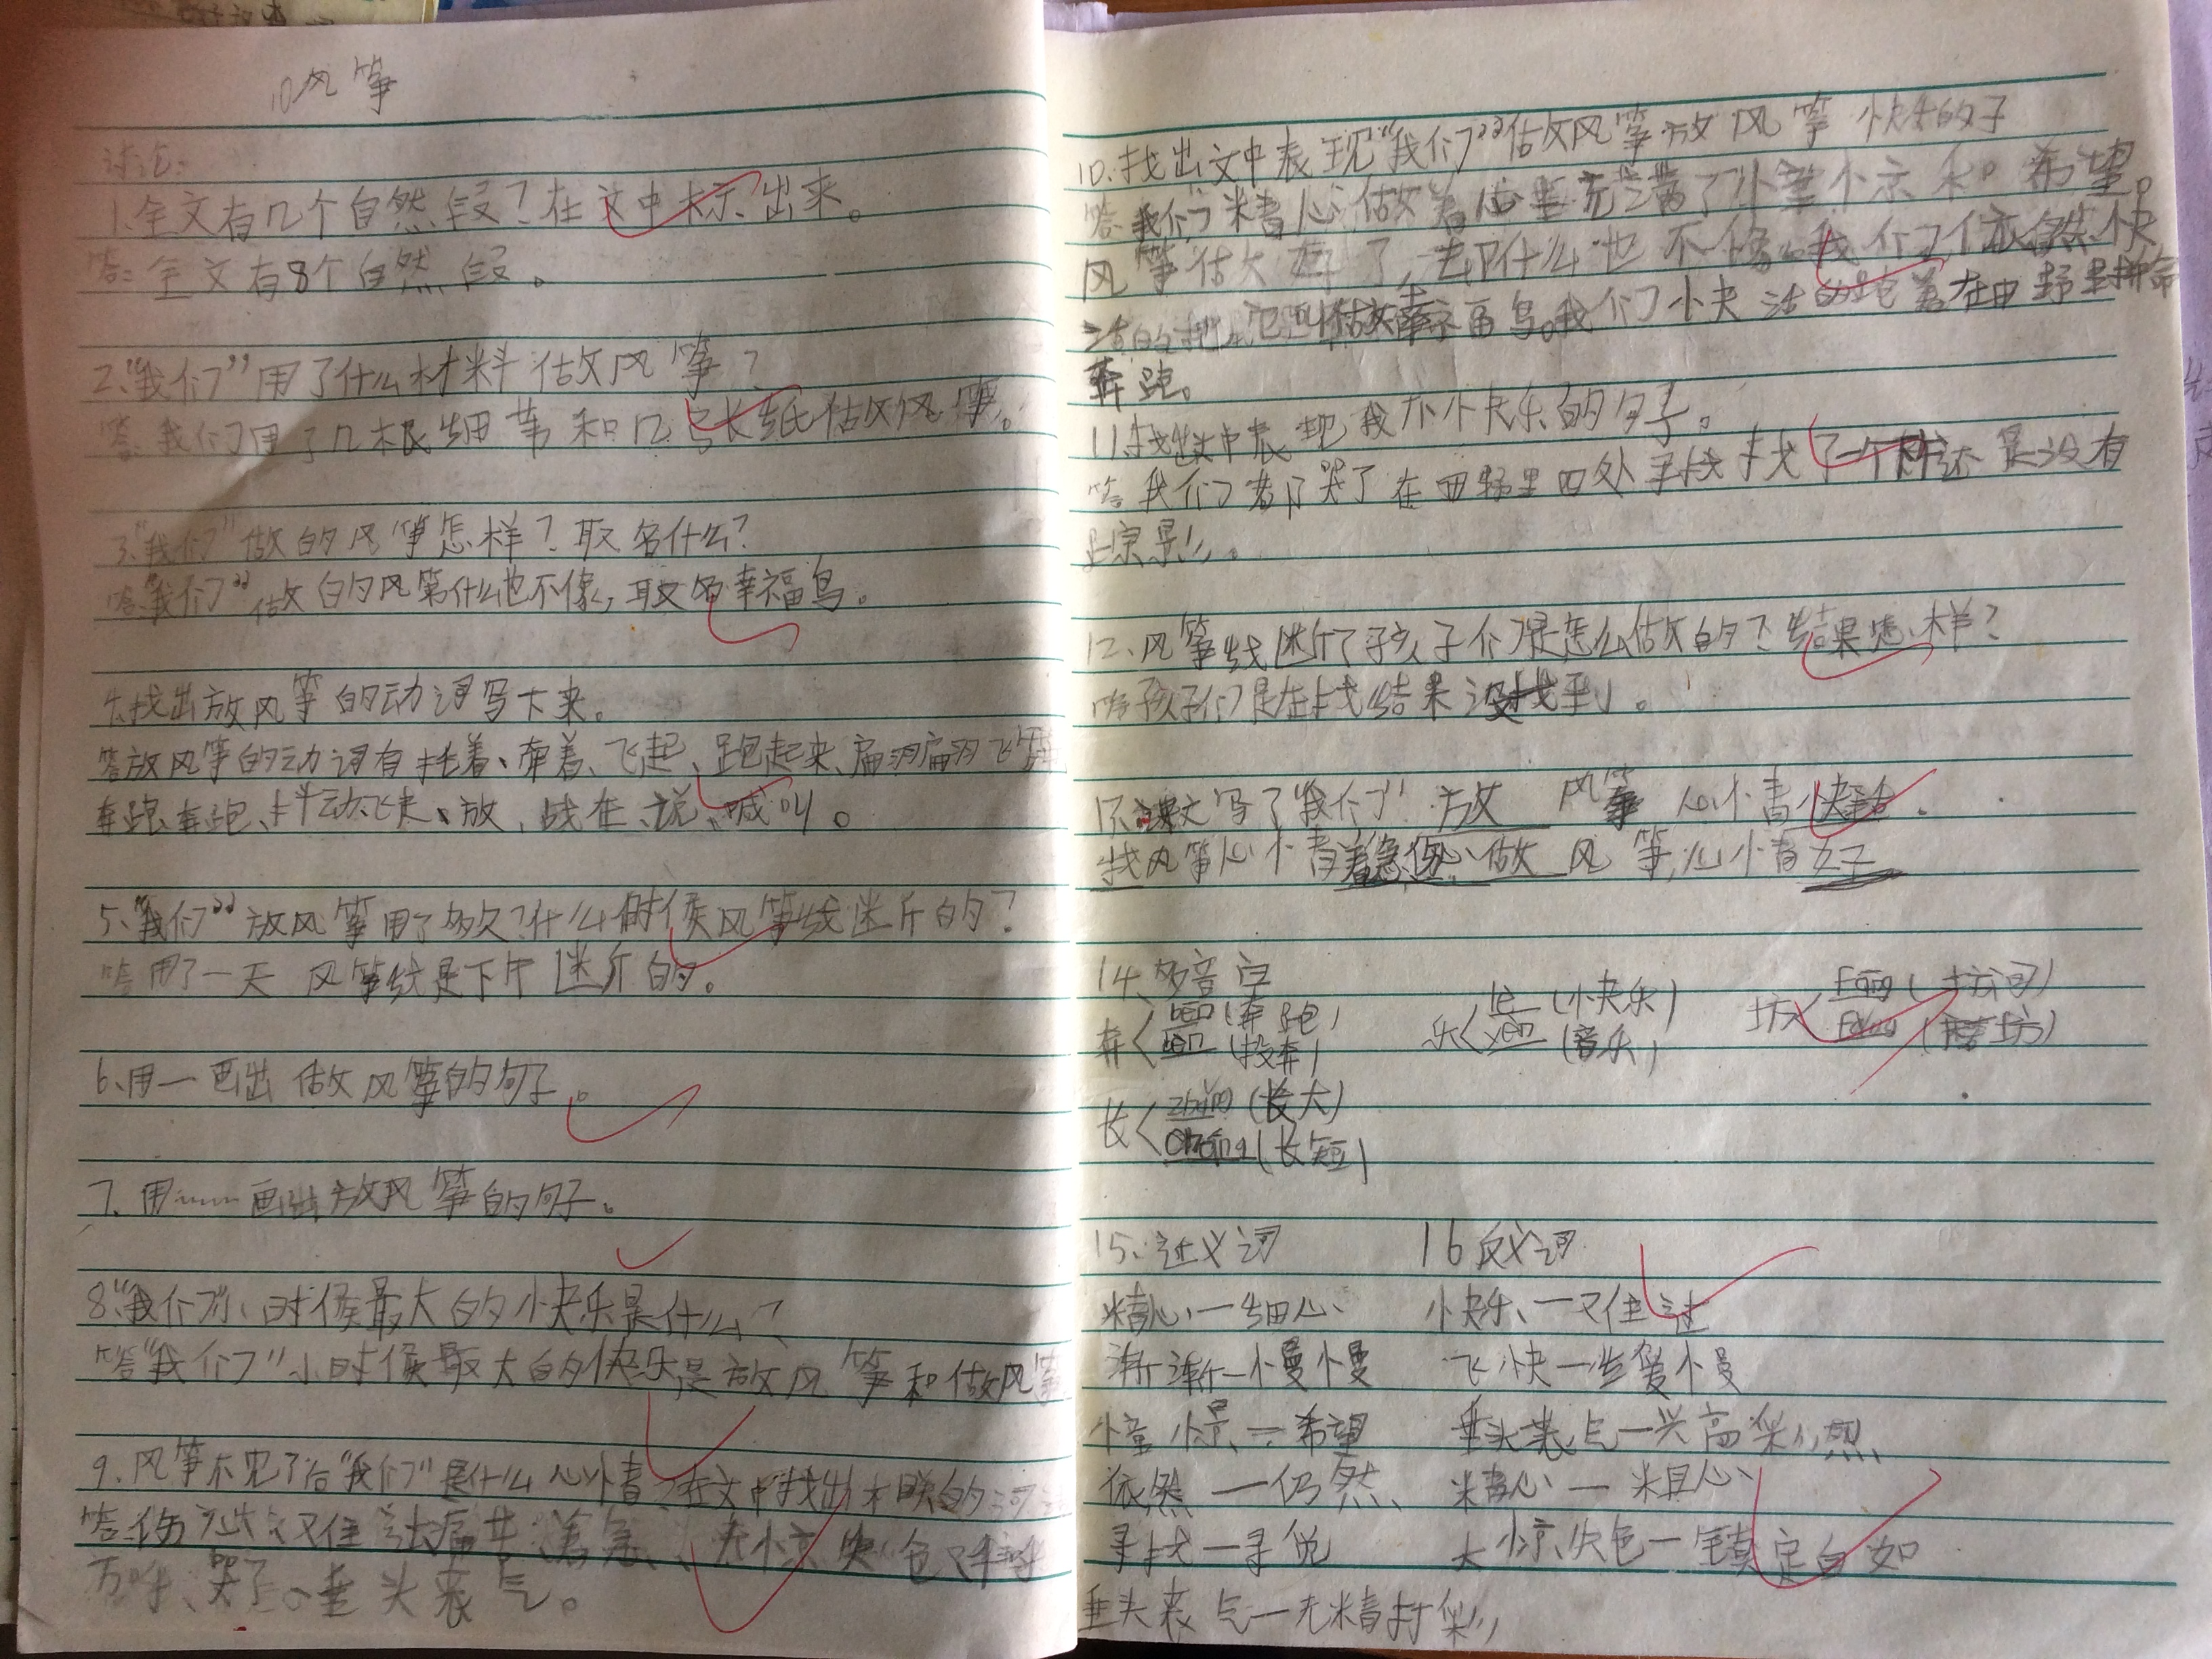 10风筝
讨论:
1.全文有几个自然段?在文中标示出来。
答:全文有8个自然段。
2、“我们”用了什么材料做风筝?
答:我们用了几根细苇和几 长纸做风筝。
3、“我们”做的风筝怎样?取名什么?
答:“我们”做的风筝什么也不像,取名幸福鸟。
4、找出放风筝的动词写下来。
答放风筝的动词有托着、牵着、飞起、跑起来、翩翩飞舞
奔跑、奔跑、抖动、飞走、放、战在、说、喊叫。
5、“我们”放风筝用了多久?什么时候风筝线断的?
答用了一天 风筝线是下午断的。
6、用一画出做风筝的句子。
7、用﹏﹏画出放风筝的句子。
8“我们”小时候最大的快乐是什么?
答“我们”小时候最大的快乐是放风筝和做风筝
9、风筝不见了后“我们”是什么心情?在文中找出相联的词
答:伤 着急、大惊失色
哭了。垂头丧气。
10.找出文中表现“我们”做风筝放风筝快乐的子
答:我们精心做着心里充满了憧憬和希望。
风筝做好了,却什么也不像。我们依然快
活的把它叫做幸福鸟。我们快活的跑着在田野里拼命
奔跑。
11.找出文中表现我不快乐的句子。
答:我们都哭了在田野里四处寻找找了一个 还是没有
踪影。
12、风筝线断了孩子们是怎么做的?结果怎样?
答孩子们是在找结果没找到。
13课文写了“我们”放 风筝 心情快活.
找风筝心情着急伤心,做 风筝,心情
14、多音字
奔 bēn(奔跑) 乐 lè(快乐) 坊 fāng(坊间)
bèn(投奔) yuè(音乐) fáng( 坊)
长 zhǎng(长大)
cháng(长短)
15、近义词 16反义词
精心一细心 快乐、一
渐渐一慢慢 飞快一 慢
憧憬一希望 垂头丧气一兴高采烈
依然一仍然、 精心一粗心
寻找一寻觅 大惊失色一镇定自如
垂头丧气一无精打彩